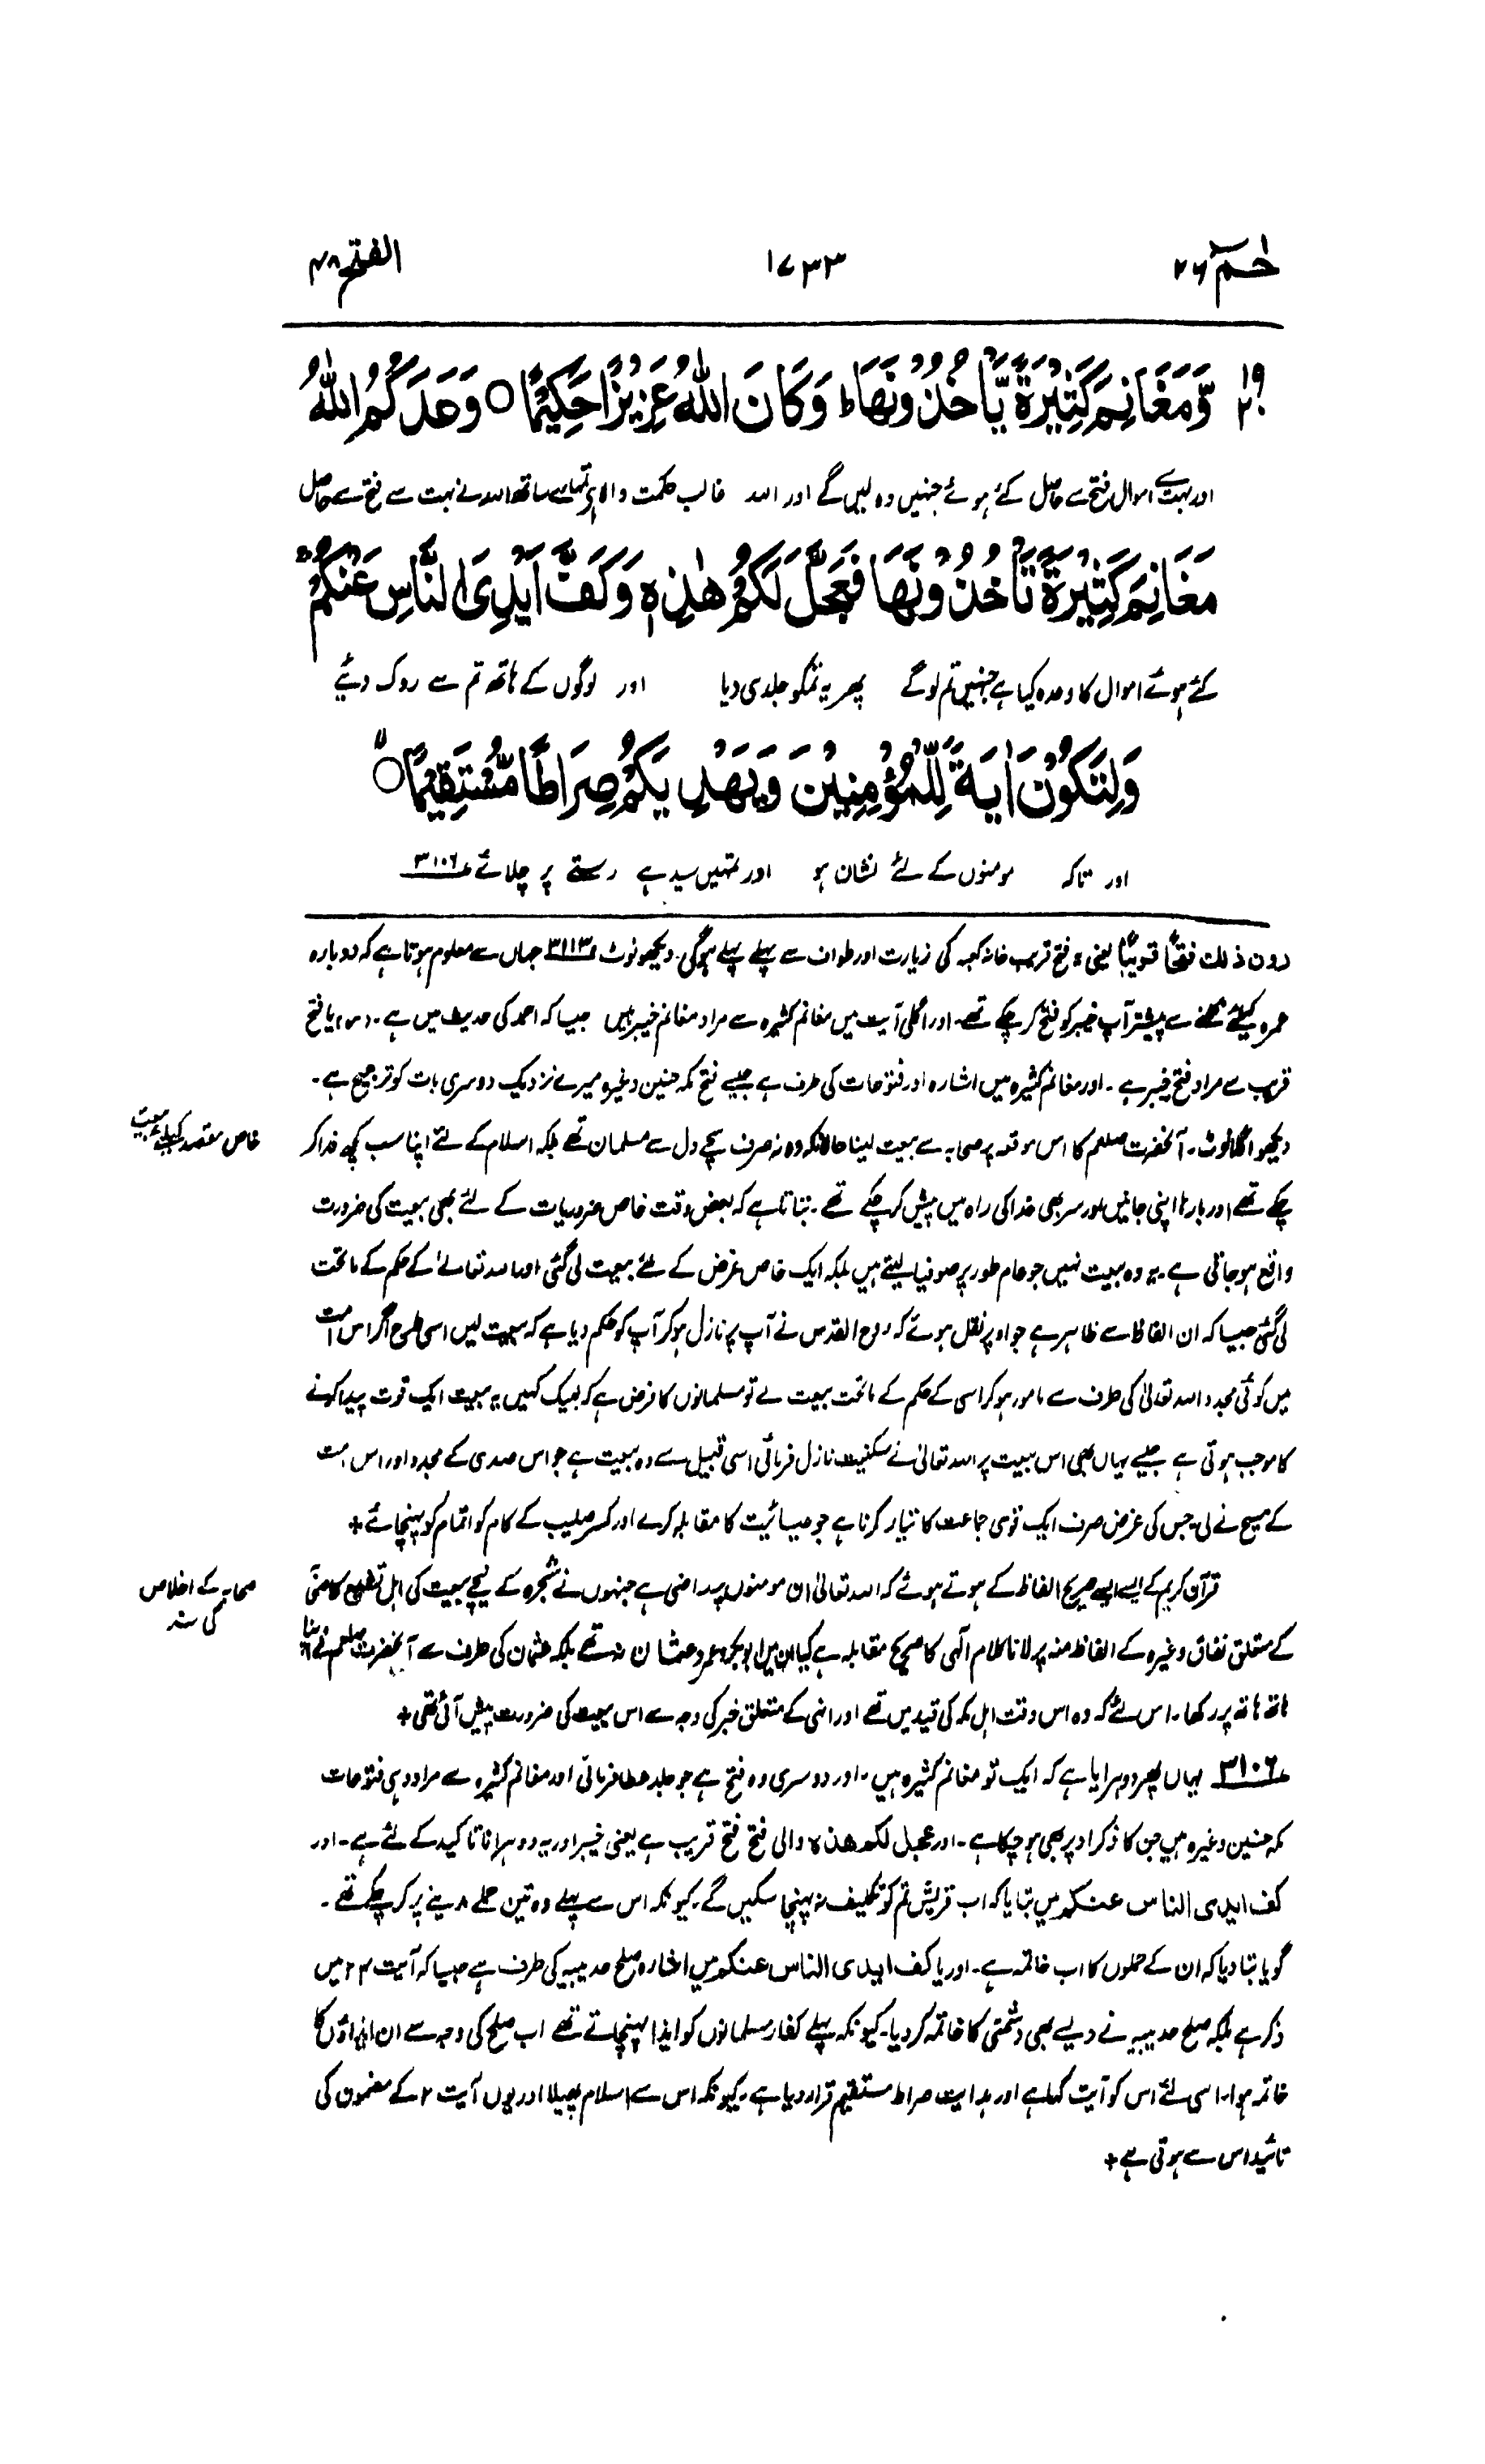 حٰمٓ ۲۶ ۱۷۳۳ الفتح ۴۸
۱۹ وَّمَغَانِمَ كَثِيْرَةً يَّاْخُذُوْنَهَا ؕ وَكَانَ اللّٰهُ عَزِيْزًا حَكِيْمًا ○ وَعَدَكُمُ اللّٰهُ
۲۰
اور بہت سے اموال فتح سے حاصل کئے ہوئے جنہیں وہ لیں گے اور اللہ غالب حکمت والا ہے تمہارے ساتھ اللہ نے بہت سے فتح سے حاصل
مَغَانِمَ كَثِيْرَةً تَاْخُذُوْنَهَا فَعَجَّلَ لَكُمْ هٰذِهٖ وَكَفَّ اَيْدِيَ النَّاسِ عَنْكُمْ ۚ
کئے ہوئے اموال کا وعدہ کیا ہے جنہیں تم لوگے پھر یہ تمکو جلدی دیا اور لوگوں کے ہاتھ تم سے روک دیئے
وَلِتَكُوْنَ اٰيَةً لِّلْمُؤْمِنِيْنَ وَيَهْدِيَكُمْ صِرَاطًا مُّسْتَقِيْمًا ○
اور تاکہ مومنوں کے لئے نشان ہو اور تمہیں سیدہے رستے پر چلائے ۳۱۰۶
دون ذلك فتحًا قريبًا یعنی یہ فتح قریب خانہ کعبہ کی زیارت اور طواف سے پہلے پہلے ہوگی۔ دیکھو نوٹ ۳۱۱۳ جہاں سے معلوم ہوتا ہے کہ دوبارہ
عمرہ کیلئے نکلنے سے پیشتر آپ خیبر کو فتح کر چکے تھے۔ اور اگلی آیت میں مغانم کثیرہ سے مراد مغانم خیبر ہیں جیسا کہ احمد کی حدیث میں ہے۔ (۲) یا فتح
قریب سے مراد فتح خیبر ہے۔ اور مغانم کثیرہ میں اشارہ اور فتوحات کی طرف ہے جیسے فتح مکہ حنین وغیرہ میرے نزدیک دوسری بات کو ترجیح ہے۔
دیکھو اگلا نوٹ۔ آنحضرت صلعم کا اس موقعہ پر صحابہ سے بیعت لینا حالانکہ وہ نہ صرف سچے دل سے مسلمان تھے بلکہ اسلام کے لئے اپنا سب کچھ فدا کر
خاص مقصد کیلئے بیعت
چکے تھے اور بارہا اپنی جانیں اور سر بھی خدا کی راہ میں پیش کر چکے تھے۔ بتاتا ہے کہ بعض وقت خاص ضروریات کے لئے بھی بیعت کی ضرورت
واقع ہو جاتی ہے۔ یہ وہ بیعت نہیں جو عام طور پر صوفیا لیتے ہیں بلکہ ایک خاص غرض کے لئے بیعت لی گئی اور اللہ تعالےٰ کے حکم کے ماتحت
لی گئی جیسا کہ ان الفاظ سے ظاہر ہے جو اوپر نقل ہوئے کہ روح القدس نے آپ پر نازل ہو کر آپ کو حکم دیا ہے کہ بیعت لیں اسی طرح اگر اس امت
میں کوئی مجدد اللہ تعالیٰ کی طرف سے مامور ہو کر اسی کے حکم کے ماتحت بیعت لے تو مسلمانوں کا فرض ہے کہ لبیک کہیں یہ بیعت ایک قوت پیدا کرنے
کا موجب ہوتی ہے جیسے یہاں بھی اس بیعت پر اللہ تعالیٰ نے سکینت نازل فرمائی اسی قبیل سے وہ بیعت ہے جو اس صدی کے مجدد اور اس امت
کے مسیح نے لی۔ جس کی غرض صرف ایک قومی جماعت کا تیار کرنا ہے جو عیسائیت کا مقابلہ کرے اور کسر صلیب کے کام کو اتمام کو پہنچائے +
قرآن کریم کے ایسے ایسے صریح الفاظ کے ہوتے ہوئے کہ اللہ تعالیٰ ان مومنوں پر راضی ہے جنہوں نے شجرہ کے نیچے بیعت کی اہل تشیع کا صحابہ
صحابہ کے اخلاص
کی سند
کے متعلق نفاق وغیرہ کے الفاظ منہ پر لانا کلام الٰہی کا صریح مقابلہ ہے کیا ان میں ابوبکر و عمر و عثمان نہ تھے بلکہ عثمان کی طرف سے آنحضرت صلعم نے اپنا
ہاتھ ہاتھ پر رکھا۔ اس لئے کہ وہ اس وقت اہل مکہ کی قید میں تھے اور انہی کے متعلق خبر کی وجہ سے اس بیعت کی ضرورت پیش آئی تھی +
۳۱۰۶ یہاں پھر دوہرایا ہے کہ ایک تو مغانم کثیرہ ہیں۔ اور دوسری وہ فتح ہے جو جلد عطا فرمائی اور مغانم کثیرہ سے مراد وہی فتوحات
مکہ حنین وغیرہ ہیں جن کا ذکر اوپر بھی ہو چکا ہے۔ اور عجل لكم هذه والی فتح فتح قریب ہے یعنی خیبر اور یہ دوہرانا تاکید کے لئے ہے۔ اور
كف ايدى الناس عنكم میں بتایا کہ اب قریش تم کو تکلیف نہ پہنچا سکیں گے۔ کیونکہ اس سے پہلے وہ تین حملے مدینے پر کر چکے تھے۔
گویا بتا دیا کہ ان کے حملوں کا اب خاتمہ ہے۔ اور یا كف ايدى الناس عنكم میں اشارہ صلح حدیبیہ کی طرف ہے جیسا کہ آیت ۲۴ میں
ذکر ہے بلکہ صلح حدیبیہ نے ویسے بھی دشمنی کا خاتمہ کر دیا۔ کیونکہ پہلے کفار مسلمانوں کو ایذا پہنچاتے تھے اب صلح کی وجہ سے ان ایذاؤں کا
خاتمہ ہوا۔ اسی لئے اس کو آیت کہا ہے اور ہدایت صراط مستقیم قرار دیا ہے۔ کیونکہ اس سے اسلام پھیلا اور یوں آیت ۲ کے مضمون کی
تائید اس سے ہوتی ہے +